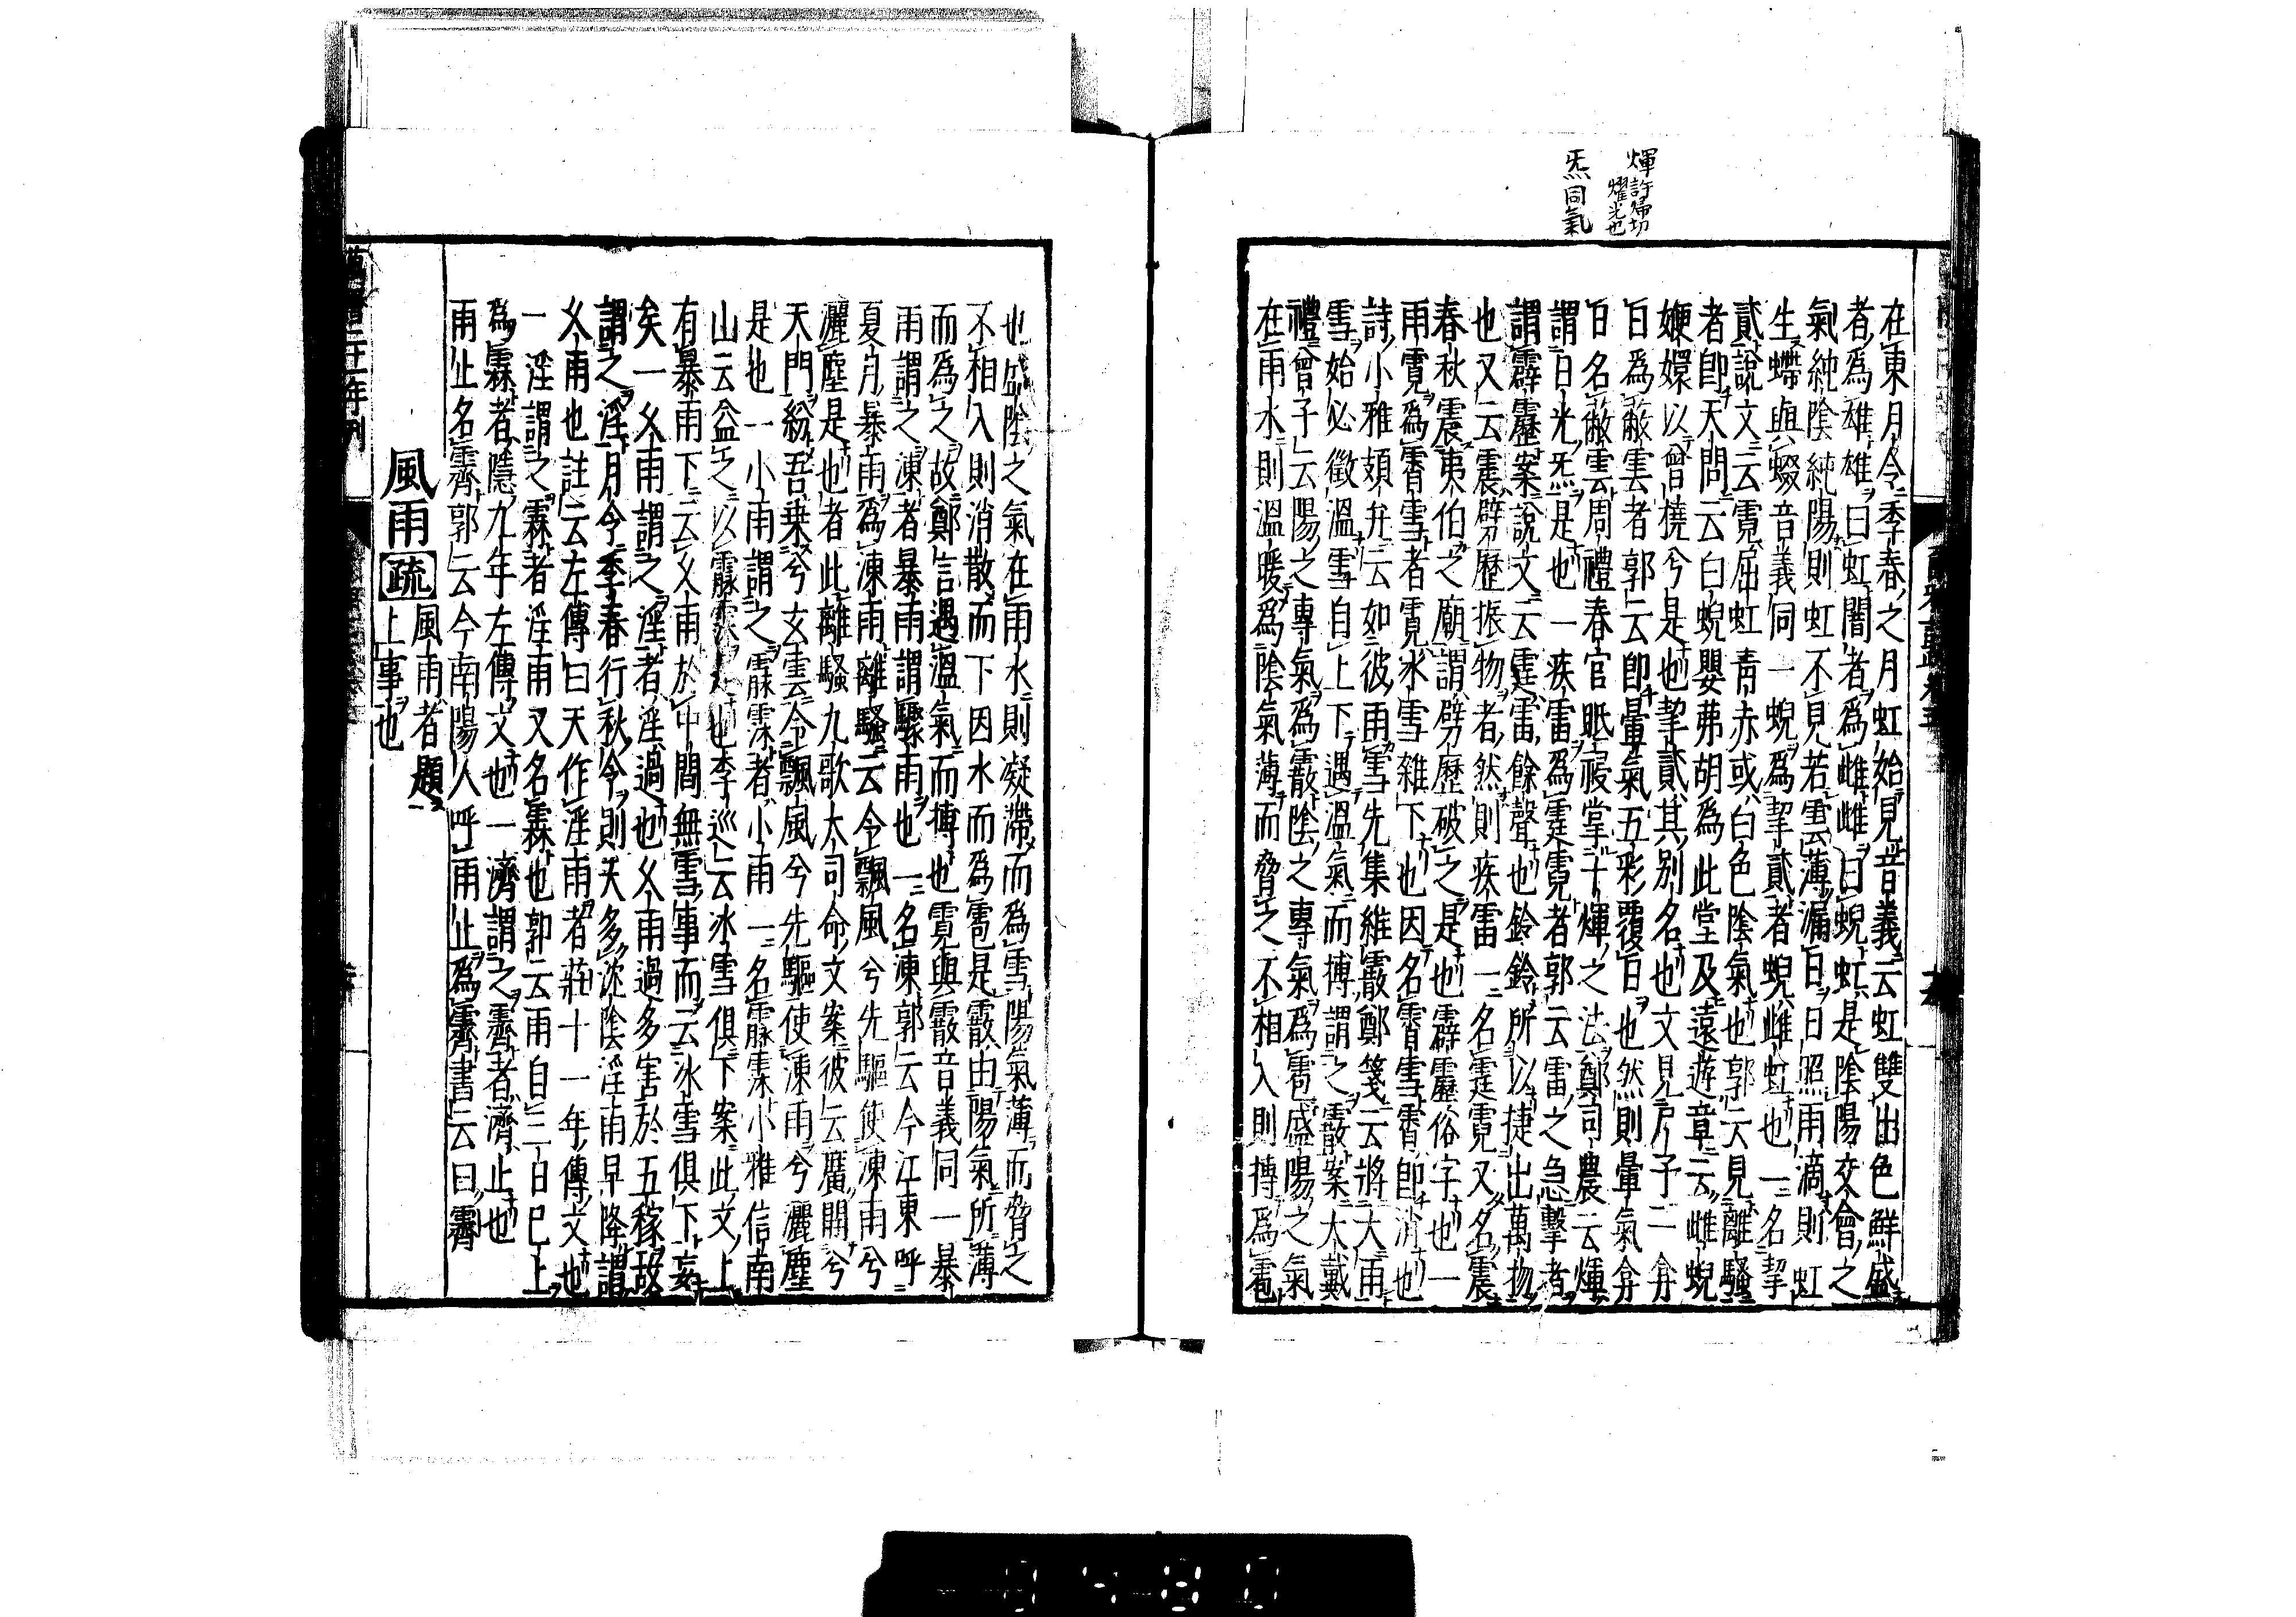 煇許歸切
燿光也
炁同氣
在東月令季春之月虹始見音義云虹雙出色鮮盛
者爲雄雄曰虹闇者爲雌雌曰蜺虹是陰陽交會之
氣純陰純陽則虹不見若雲薄漏日日照雨滴則虹
生螮與蝃音義同一蜺爲挈貳者蜺雌虹也一名挈
貳說文云霓屈虹青赤或白色陰氣也郭云見離騷
者卽天問云白蜺嬰茀胡爲此堂及遠遊章云雌蜺
㛹嬛以曾橈兮是也挈貳其別名也文見尸子二弇
日爲蔽雲者郭云卽暈氣五彩覆日也然則暈氣弇
日名蔽雲周禮春官眂祲掌十煇之法鄭司農云煇
謂日光炁是也一疾雷爲霆霓者郭云雷之急擊者
謂霹靂案說文云霆雷餘聲也鈴鈴所以挺出萬物
也又云震劈歷振物者然則疾雷一名霆霓又名震
春秋震夷伯之廟謂劈歷破之是也霹靂俗字也一
雨霓爲霄雪者霓冰雪雜下也因名霄雪霄卽消也
詩小雅頍弁云如彼雨雪先集維霰鄭箋云將大雨
雪始必微溫雪自上下遇溫氣而摶謂之霰案大戴
禮曾子云陽之專氣爲霰陰之專氣爲雹盛陽之氣
在雨水則溫暖爲陰氣薄而脅之不相入則摶爲雹
也盛陰之氣在雨水則凝滯而爲雪陽氣薄而脅之
不相入則消散而下因水而爲雹是霰由陽氣所薄
而爲之故鄭言遇溫氣而摶也霓與霰音義同一暴
雨謂之涷者暴雨謂驟雨也一名涷郭云今江東呼
夏月暴雨爲涷雨離騷云令飄風兮先驅使涷雨兮
灑塵是也者此離騷九歌大司命文案彼云廣開兮
天門紛吾乗兮玄雲令飄風兮先驅使涷雨兮灑塵
是也一小雨謂之霡霂者小雨一名霡霂小雅信南
山云益之以霡霂是也李巡云冰雪俱下案此文上
有暴雨下云久雨於中間無雪事而云冰雪俱下妄
矣一久雨謂之淫者淫過也久雨過多害於五稼故
謂之淫月令季春行秋令則天多沈陰淫雨早降謂
久雨也註云左傳曰天作淫雨者莊十一年傳文也
一淫謂之霖者淫雨又名霖也郭云雨自三日巳上
爲霖者隱九年左傳文也一濟謂之霽者濟止也
雨止名霽郭云今南陽人呼雨止爲霽書云曰霽
風雨疏風雨者題
上事也